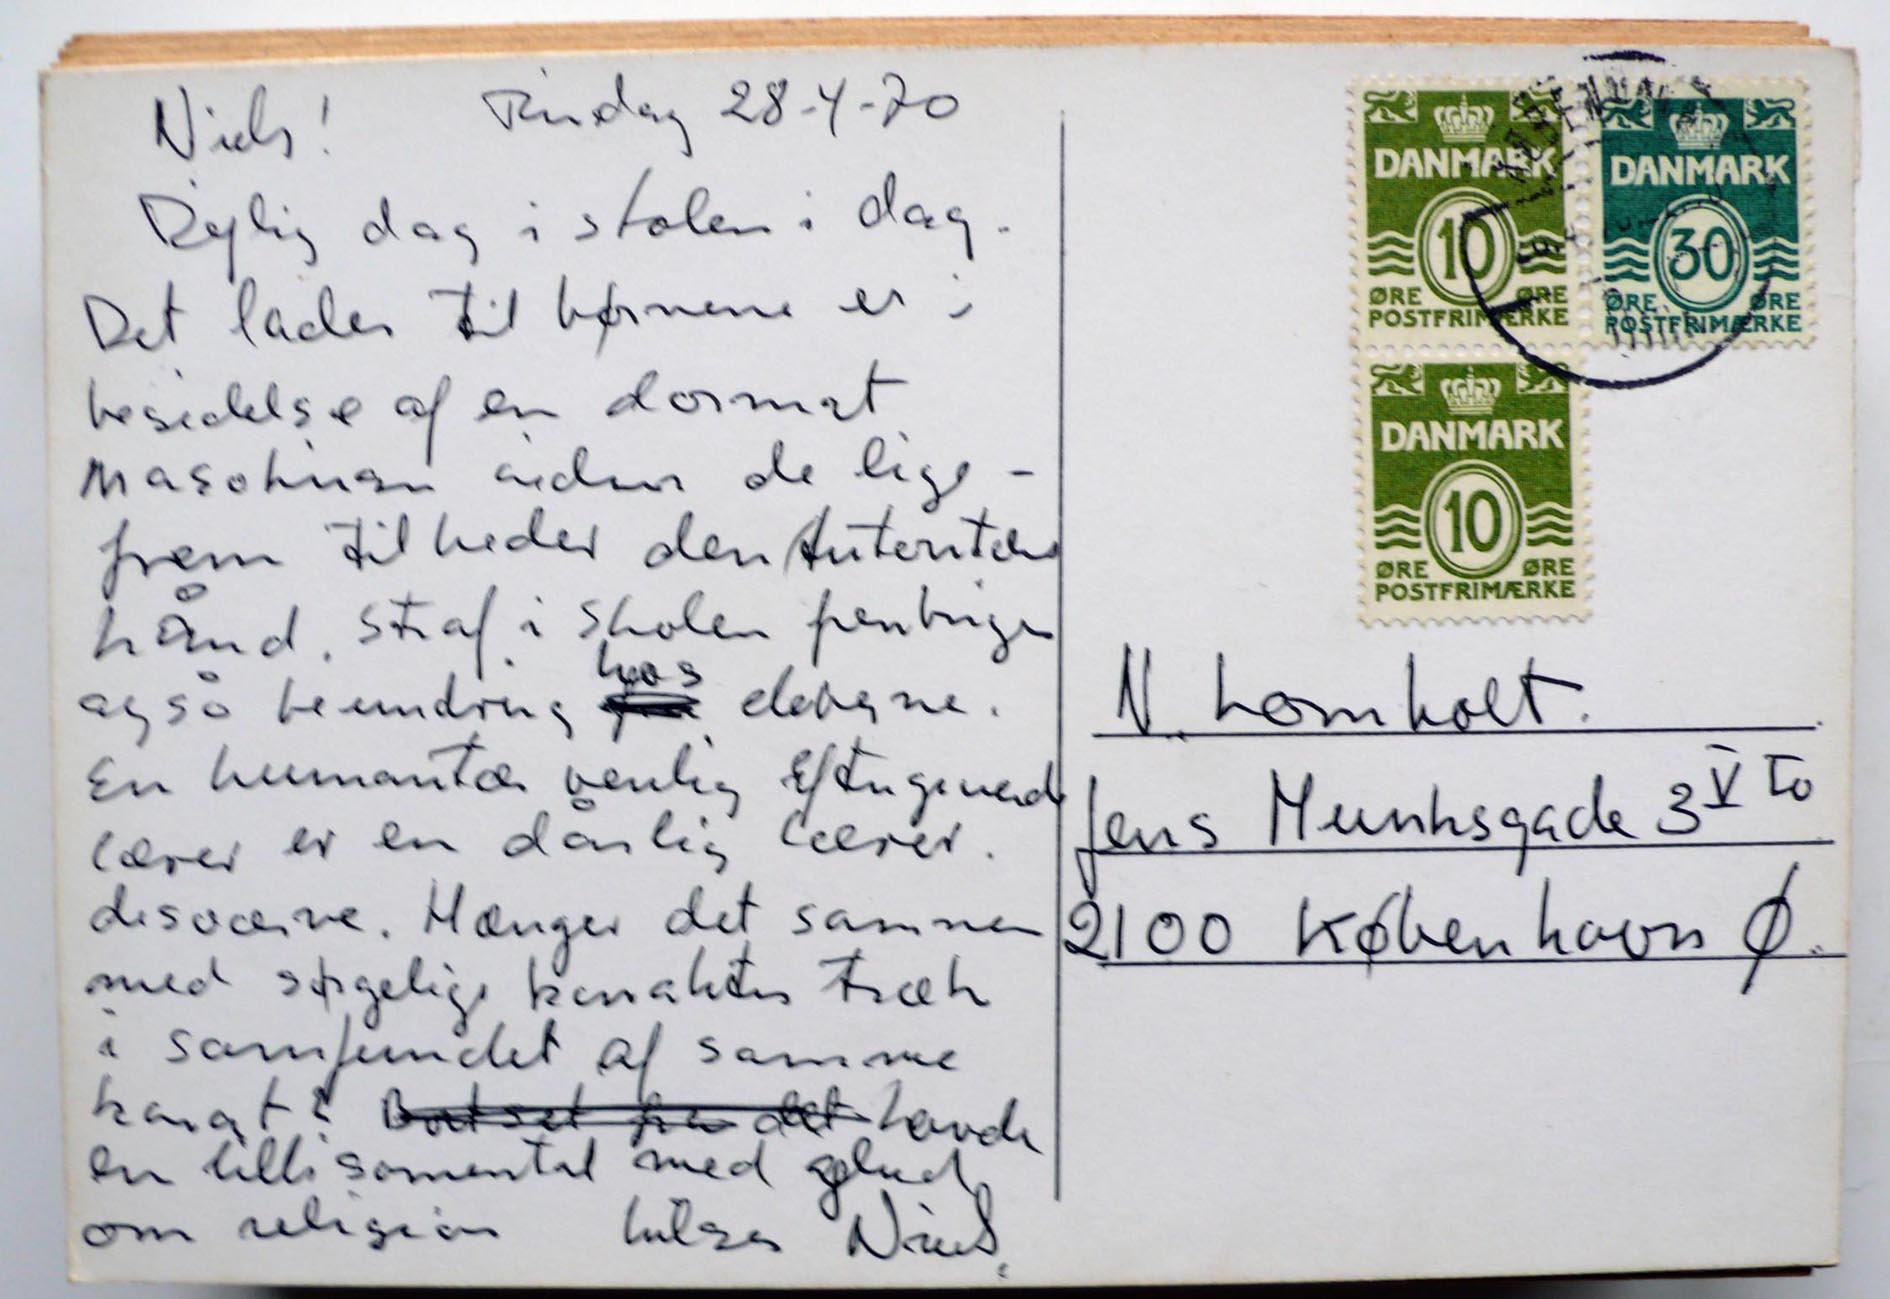 Niels! Tirsdag 28-4-70
Dejlig dag i skolen i dag.
Det lader til børnene er i
besiddelse af en dormat
masohisn siden de lige-
frem tilbeder den Autoritære
hånd. straf i skolen frembringer
også beundring hos eleverne.
En humanitær venlig Eftergivende
lærer er en dårlig lærer.
desværre. Hænger det sammen
med sørgelige karakter træk
i samfundet af samme
karat? havde
en lille samental med
om religion hilsen Niels.
DANMARK
10
ØRE ØRE
POSTFRIMÆRKE
DANMARK
30
ØRE ØRE
POSTFRIMÆRKE
DANMARK
10
ØRE ØRE
POSTFRIMÆRKE
N. Lomholt.
Jens Munksgade 3 V To
2100 København Ø.